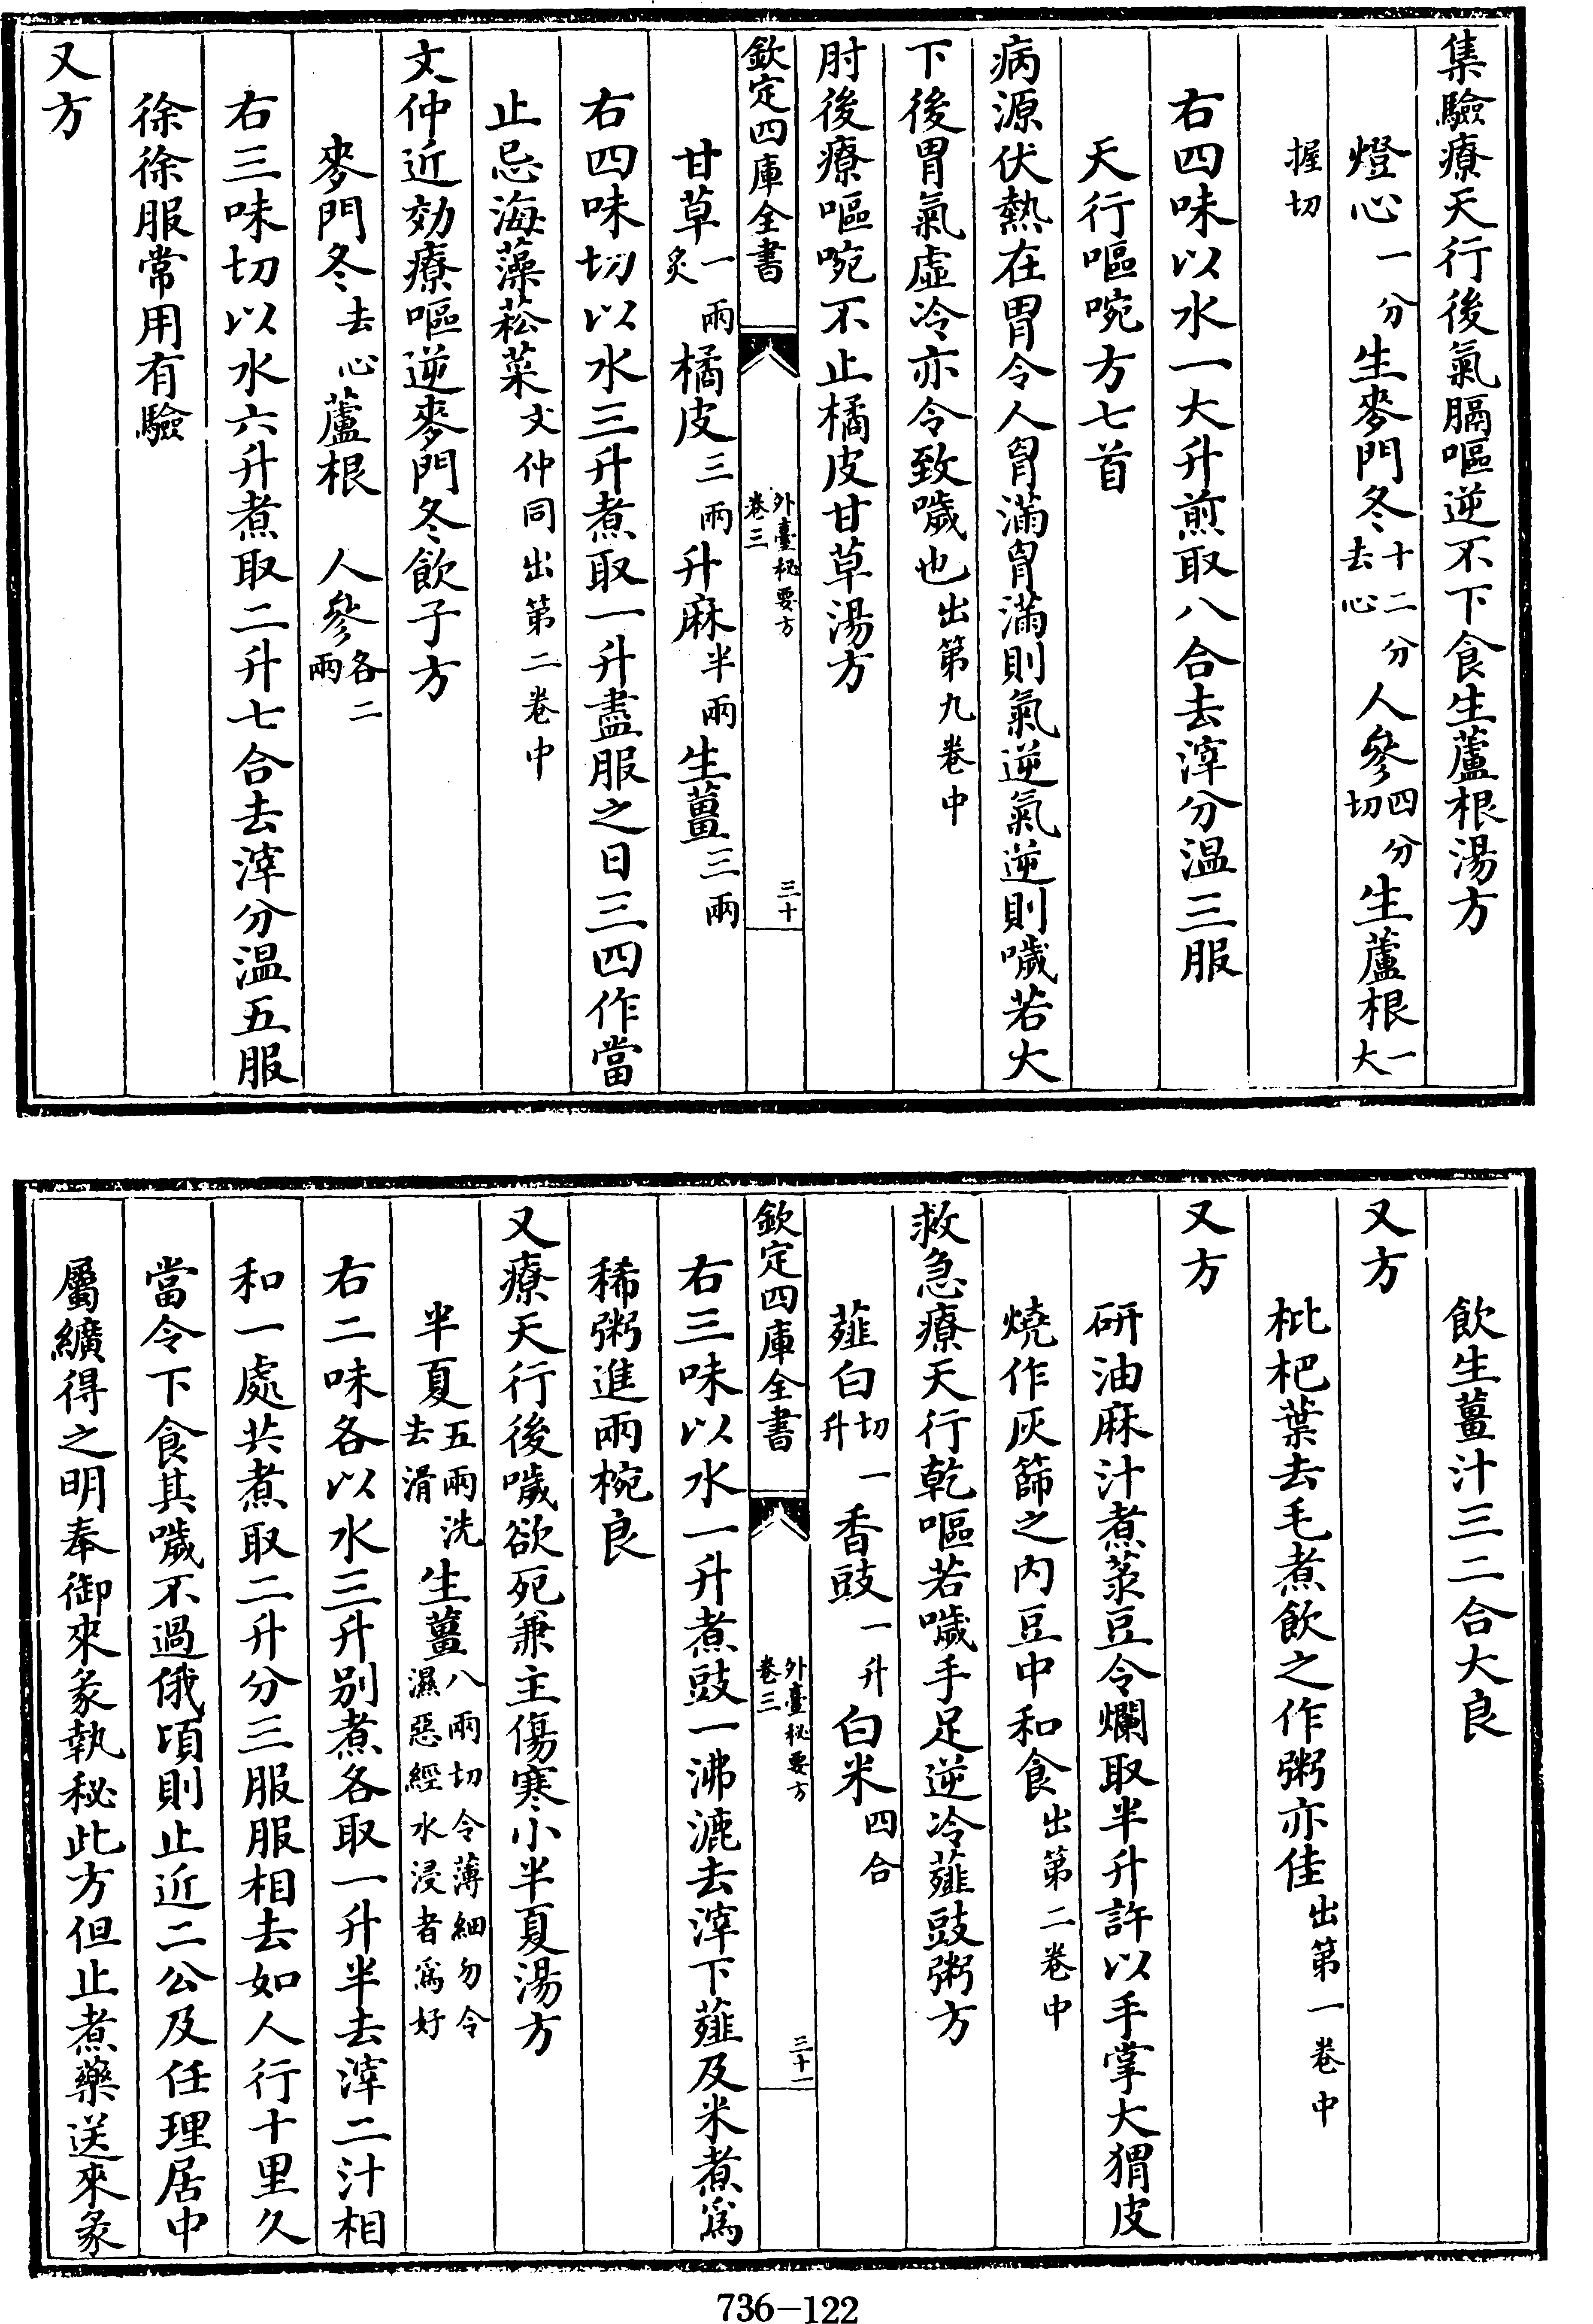 集驗療天行後氣膈嘔逆不下食生蘆根湯方
燈心一分生麥門冬十二分去心人參四分切生蘆根一大
握切
右四味以水一大升煎取八合去滓分溫三服
天行嘔啘方七首
病源伏熱在胃令人胷滿胷滿則氣逆氣逆則噦若大
下後胃氣虛冷亦令致噦也出第九卷中
肘後療嘔啘不止橘皮甘草湯方
欽定四庫全書
外臺秘要方
卷三
三十
甘草一兩炙橘皮三兩升麻半兩生薑三兩
右四味切以水三升煮取一升盡服之日三四作當
止忌海藻菘菜文仲同出第二卷中
文仲近効療嘔逆麥門冬飲子方
麥門冬去心蘆根 人參各二兩
右三味切以水六升煮取二升七合去滓分溫五服
徐徐服常用有驗
又方
飲生薑汁三二合大良
又方
枇杷葉去毛煮飲之作粥亦佳出第一卷中
又方
研油麻汁煮菉豆令爛取半升許以手掌大猬皮
燒作灰篩之內豆中和食出第二卷中
救急療天行乾嘔若噦手足逆冷薤豉粥方
薤白切一升香豉一升白米四合
欽定四庫全書
外臺秘要方
卷三
三十一
右三味以水一升煮豉一沸漉去滓下薤及米煮爲
稀粥進兩椀良
又療天行後噦欲死兼主傷寒小半夏湯方
半夏五兩洗去滑生薑八兩切令薄細勿令濕惡經水浸者爲好
右二味各以水三升别煮各取一升半去滓二汁相
和一處共煮取二升分三服服相去如人行十里久
當令下食其噦不過俄頃則止近二公及任理居中
屬纊得之明奉御來彖執秘此方但止煮藥送來彖
736-122